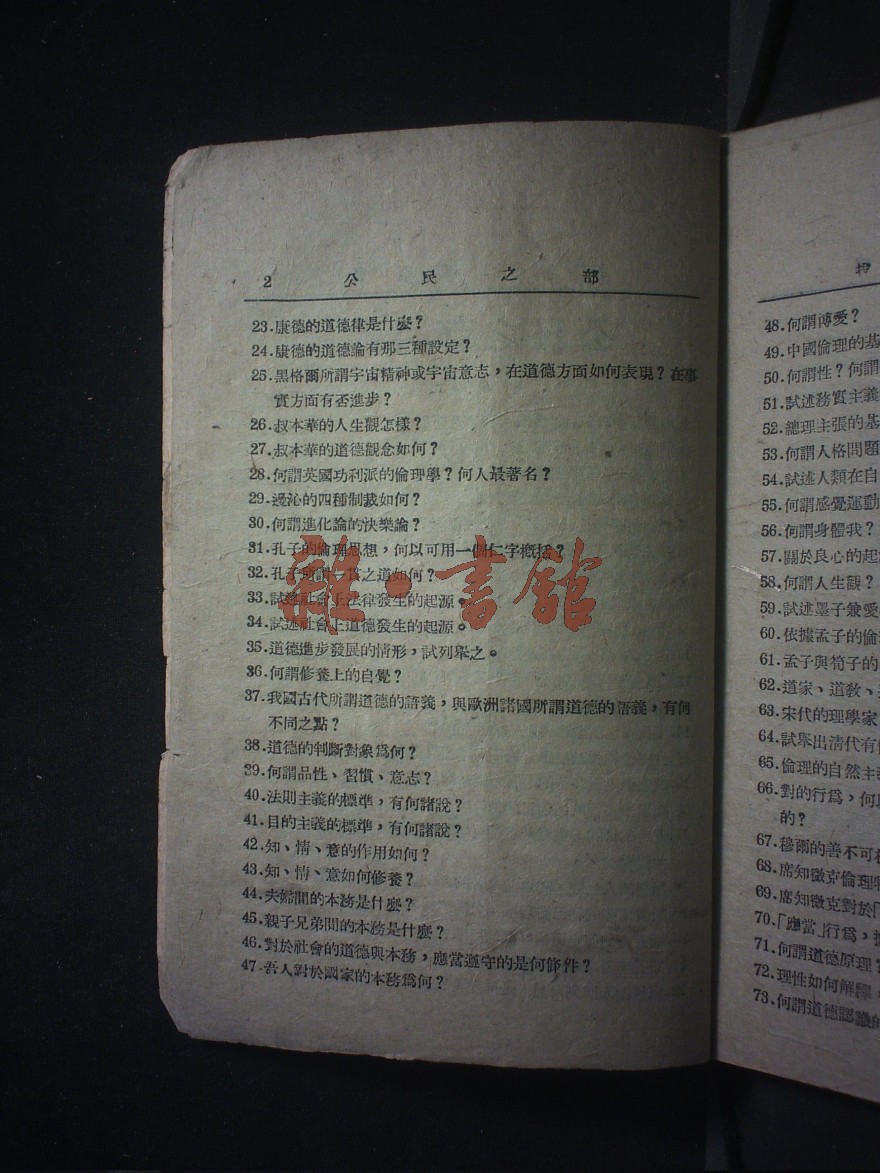 2 公民之部
23.康德的道德律是什麼？
24.康德的道德論有那三種設定？
25.黑格爾所謂宇宙精神或宇宙意志，在道德方面如何表現？在事
實方面有否進步？
26.叔本華的人生觀怎樣？
27.叔本華的道德觀念如何？
28.何謂英國功利派的倫理學？何人最著名？
29.邊沁的四種制裁如何？
30.何謂進化論的快樂論？
31.孔子的倫理思想，何以可用一個仁字概括？
32.孔子所謂一貫之道如何？
33.試述社會上法律發生的起源。
34.試述社會上道德發生的起源。
35.道德進步發展的情形，試列舉之。
36.何謂修養上的自覺？
37.我國古代所謂道德的語義，與歐洲諸國所謂道德的語義，有何
不同之點？
38.道德的判斷對象爲何？
39.何謂品性、習慣、意志？
40.法則主義的標準，有何諸說？
41.目的主義的標準，有何諸說？
42.知、情、意的作用如何？
43.知、情、意如何修養？
44.夫婦間的本務是什麼？
45.親子兄弟間的本務是什麼？
46.對於社會的道德與本務，應當遵守的是何條件？
47.吾人對於國家的本務爲何？
雜·書館
48.何謂博愛？
49.中國倫理的基
50.何謂性？何謂
51.試述務實主義
52.總理主張的基
53.何謂人格問題
54.試述人類在自
55.何謂感覺運動
56.何謂身體我？
57.關於良心的起
58.何謂人生觀？
59.試述墨子兼愛
60.依據孟子的倫
61.孟子與荀子的
62.道家、道敎、
63.宋代的理學家
64.試舉出清代有
65.倫理的自然主
66.對的行爲，何以
的？
67.穆爾的善不可
68.席知微克倫理
69.席知微克對於「
70.「應當」行爲，
71.何謂道德原理？
72.理性如何解釋，
73.何謂道德認識的